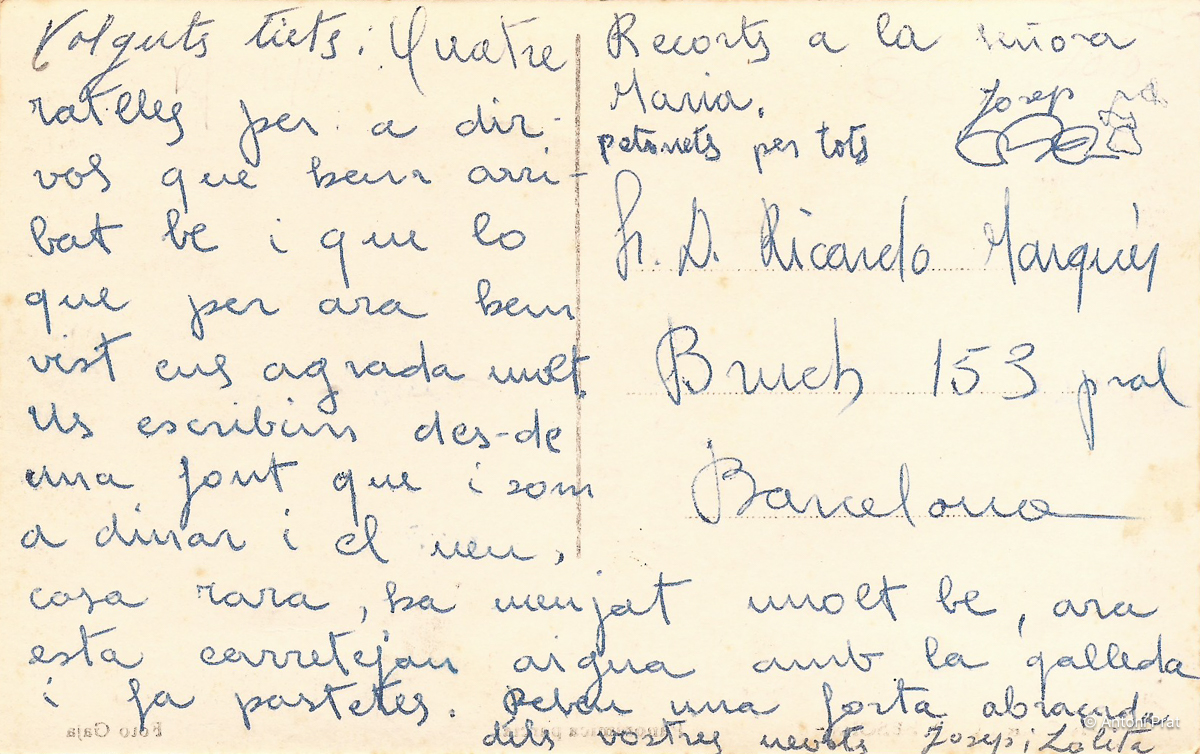 Volguts tiets: Quatre
ratlles per a dir-
vos que hem arri-
bat be i que lo
que per ara hem
vist ens agrada molt.
Us escribim des-de
una font que i som
a dinar i el nen,
cosa rara, ha menjat molt be, ara
esta carretejan aigua amb la galleda
i fa pastetes. Rebeu una forta abraçada
dels vostres nevots Josep i Lolita
Recorts a la señora
Maria.
petonets per tots
Josep
Sr. D. Ricardo Marqués
Bruch 153 pral
Barcelona
Foto Gaja
© Antoni Prat